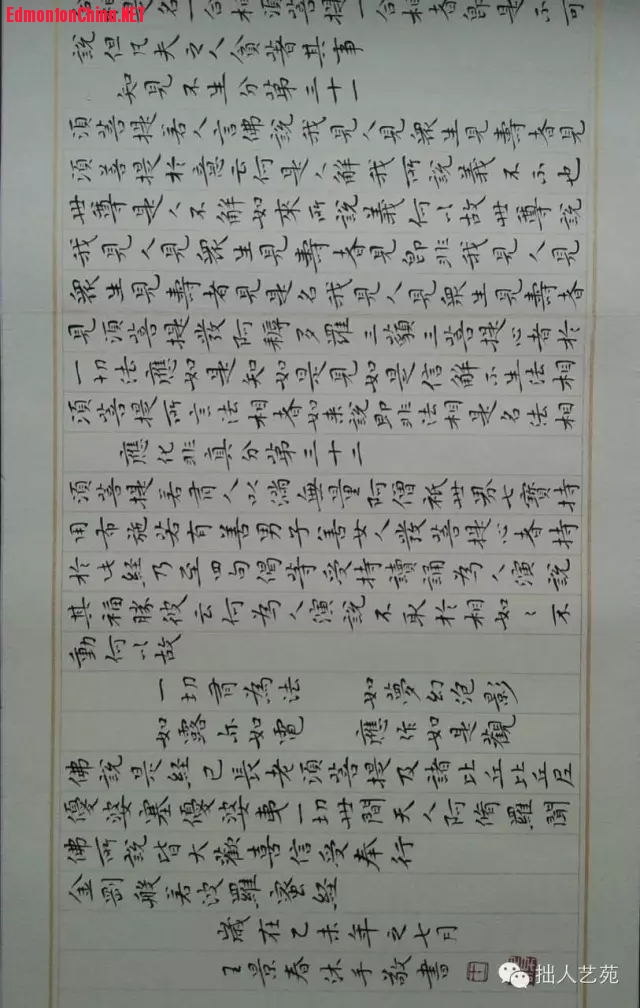 EdmontonChina.NET
名一合相須菩提一合相者即是不可
說但凡夫之人貪著其事
知見不生分第三十一
須菩提若人言佛說我見人見衆生見壽者見
須菩提於意云何是人解我所說義不不也
世尊是人不解如來所說義何以故世尊說
我見人見衆生見壽者見即非我見人見
衆生見壽者見是名我見人見衆生見壽者
見須菩提發阿耨多羅三藐三菩提心者於
一切法應如是知如是見如是信解不生法相
須菩提所言法相者如来說即非法相是名法相
應化非真分第三十二
須菩提若有人以滿無量阿僧祇世界七寶持
用布施若有善男子善女人發菩提心者持
於此経乃至四句偈等受持讀誦為人演說
其福勝彼云何為人演說不取於相如〻不
動何以故
一切有為法 如夢幻泡影
如露亦如電 應作如是觀
佛說是経已長老須菩提及諸比丘比丘尼
優婆塞優婆夷一切世間天人阿脩羅聞
佛所說皆大歡喜信受奉行
金剛般若波羅蜜経
歲在乙未年之七月
王景春沐手敬書
拙人艺苑